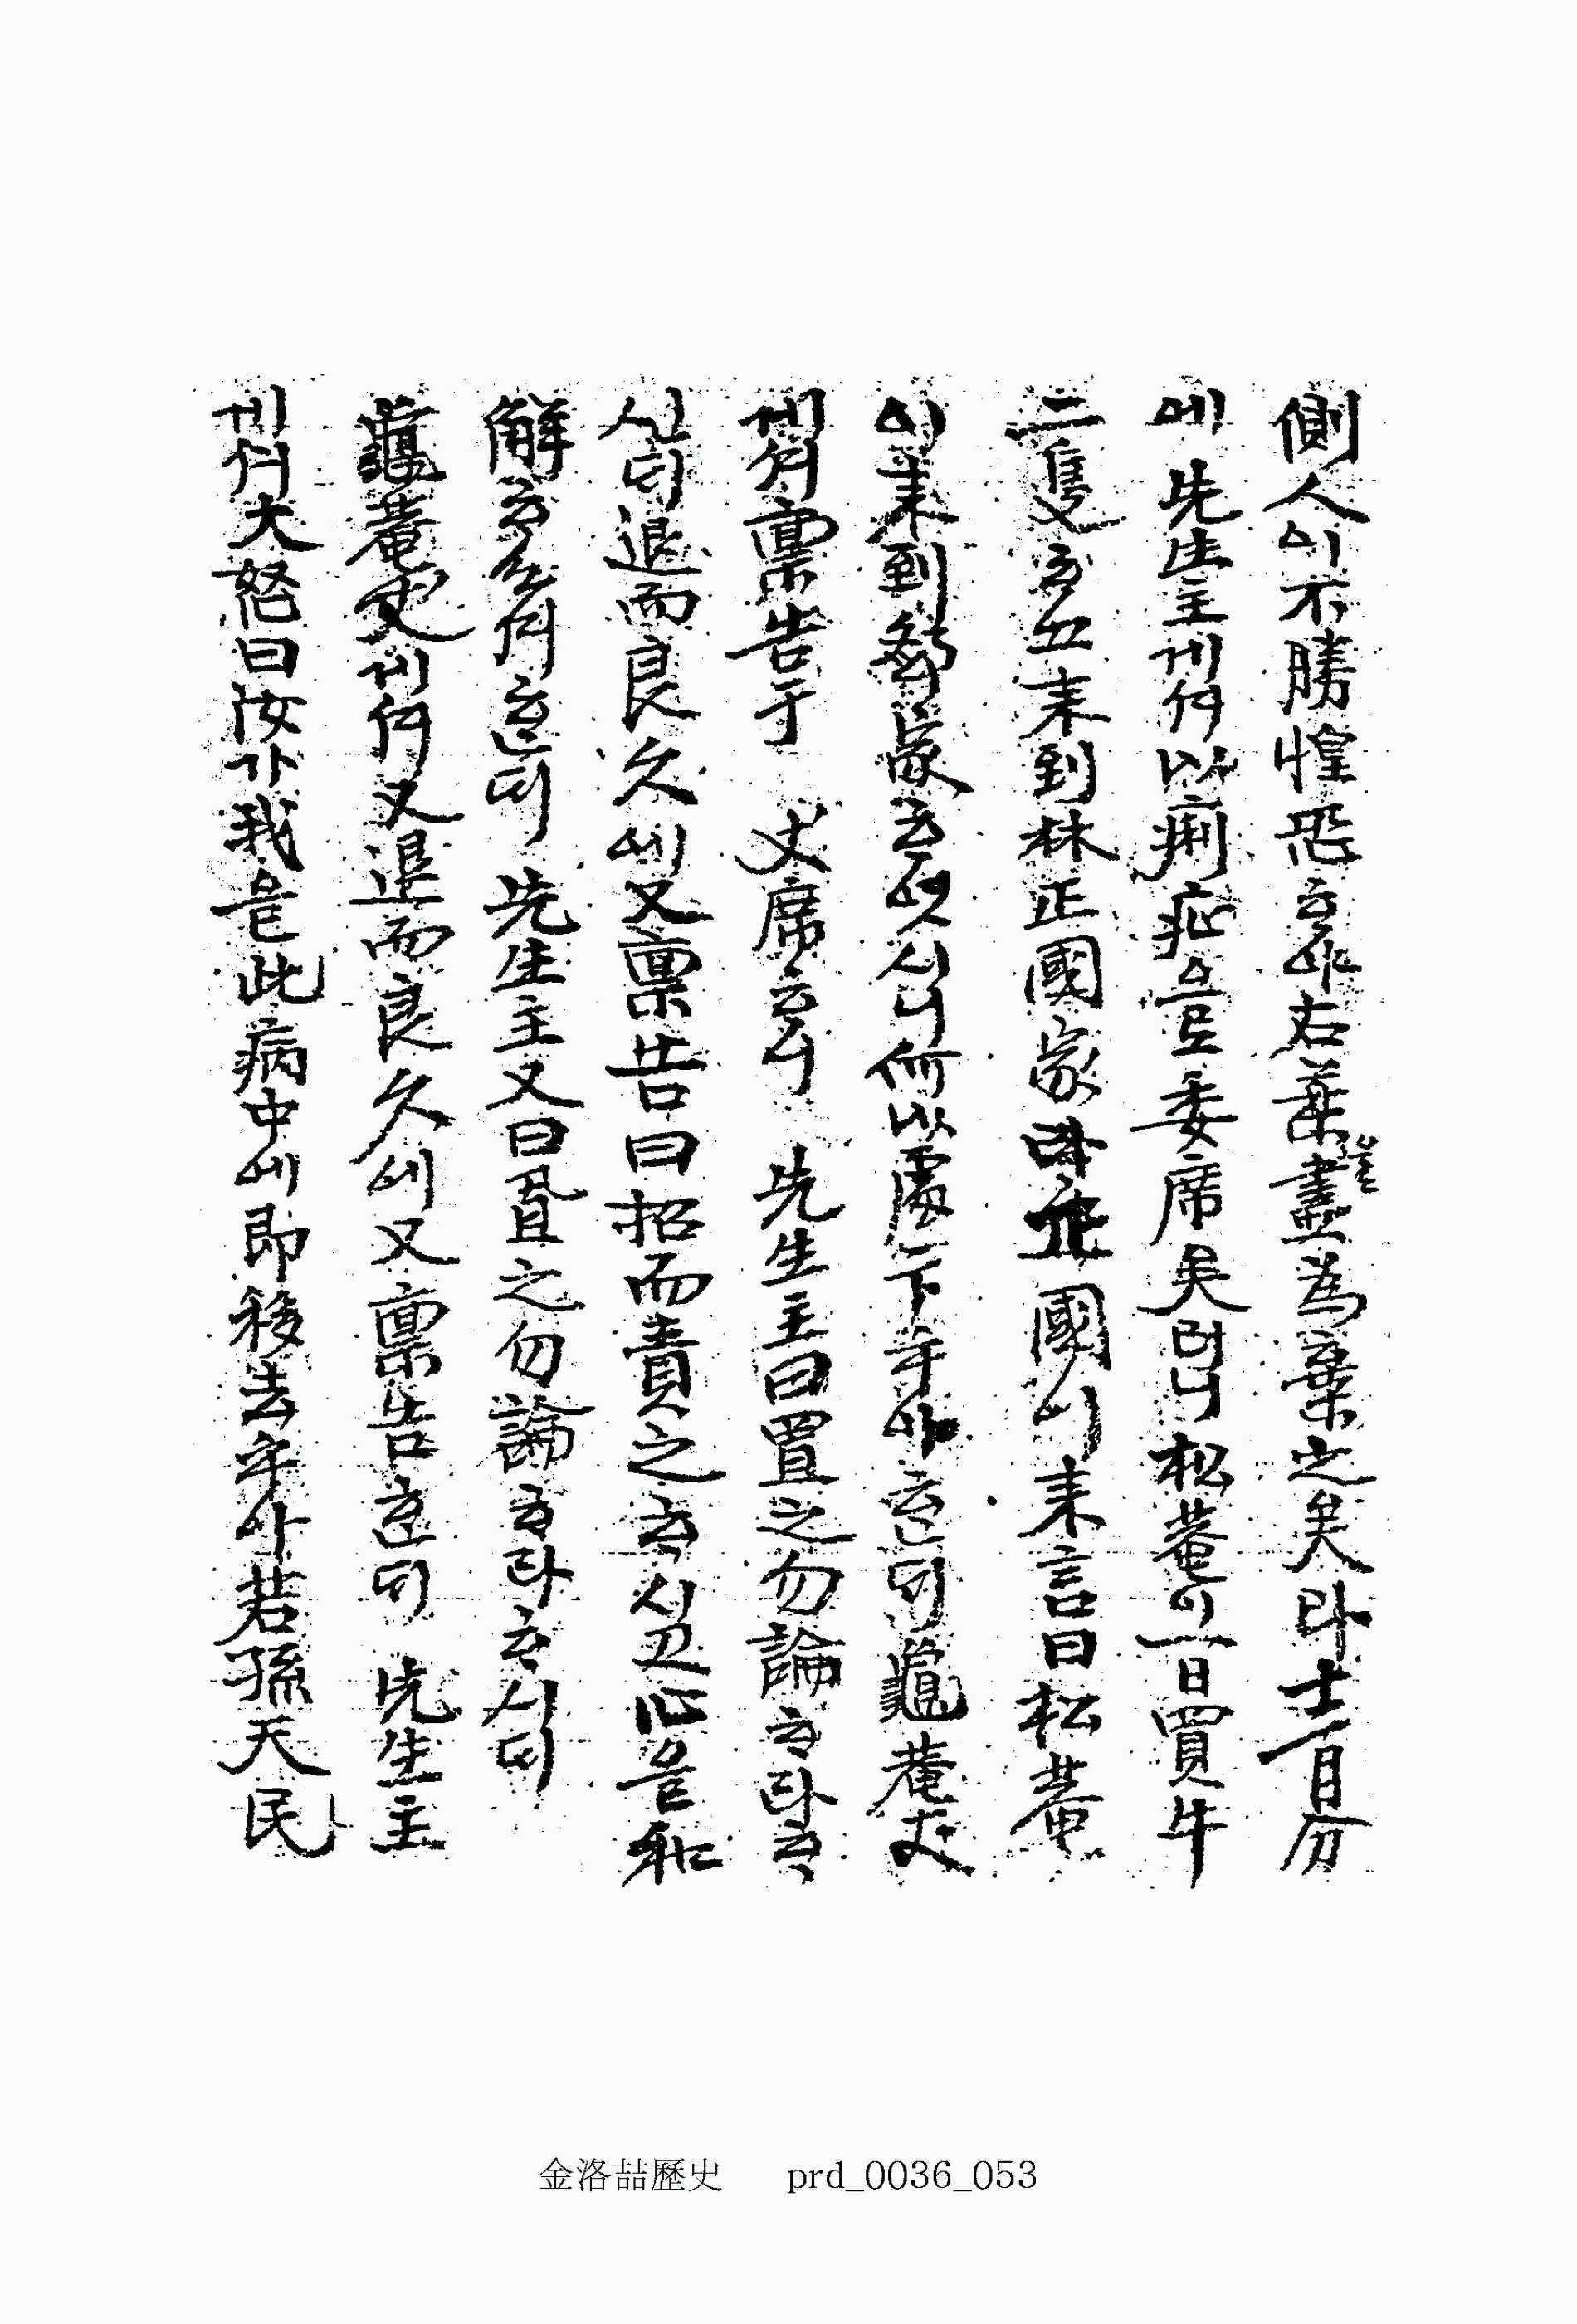 側人이不勝惶恐ᄒᆞ야右藥豈盡爲棄之矣라十一月分
에 先生主게셔以痢疾로委席矣러니松菴이一日買牛
二隻ᄒᆞ고來到林正國家 國이來言曰松菴
이來到 家ᄒᆞ엿시니何以處下乎아ᄒᆞᆫᄃᆡ龜菴丈
게셔稟告于 丈席ᄒᆞ니 先生主曰置之勿論ᄒᆞ라ᄒᆞ
신ᄃᆡ退而良久에又稟告曰招而責之ᄒᆞ시고心을和
解ᄒᆞ소셔ᄒᆞᆫᄃᆡ 先生主又曰置之勿論ᄒᆞ라ᄒᆞ시ᄃᆡ
龜菴丈게셔又退而良久에又稟告ᄒᆞᆫᄃᆡ 先生主
게셔大怒曰汝가我를此病中에即移去乎아若孫天民
金洛喆歷史 prd_0036_053